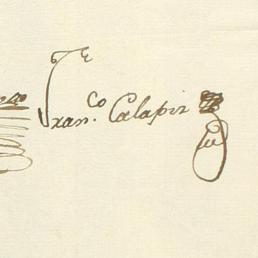 Fran.co Calapiz